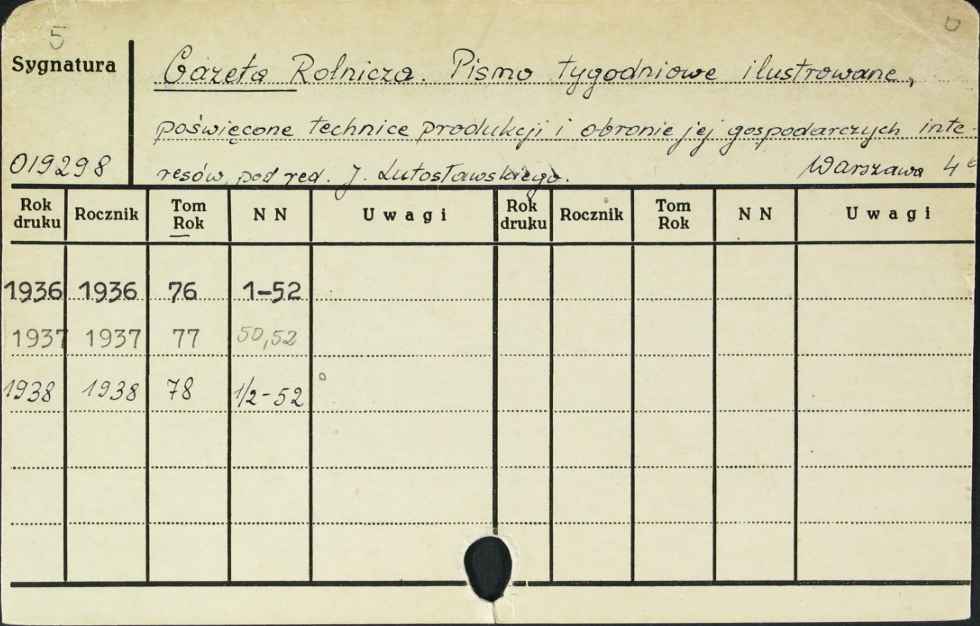 5
Sygnatura
Gazeta Rolnicza. Pismo tygodniowe ilustrowane,
poświęcone technice produkcji i obronie jej gospodarczych inte-
019298 resów, pod red. J. Lutosławskiego. Warszawa 4°
Rok druku Rocznik Tom Rok N N Uwagi Rok druku Rocznik Tom Rok N N Uwagi
1936 1936 76 1-52
1937 1937 77 50,52
1938 1938 78 1/2-52